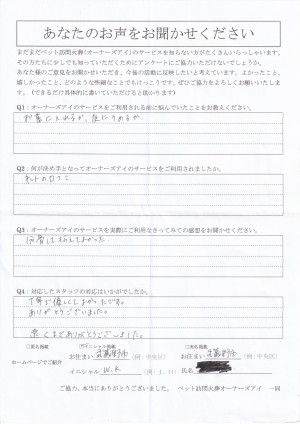 あなたのお声をお聞かせください
まだまだペット訪問火葬(オーナーズアイ)のサービスを知らない方がたくさんいらっしゃいます。
その方たちに少しでも知っていただくためにアンケートにご協力いただけないでしょうか。
あなた様のご意見をお聞かせいただき、今後の活動に反映したいと考えています。よかったこと、
嬉しかったこと、どのような些細なことでもけっこうです。ぜひご協力をよろしくお願いいたしま
す。(できるだけ具体的に書いていただけると助かります)
Q1:オーナーズアイのサービスをご利用される前に悩んでいたことをお教えください。
お墓に入れるか、庭にうめるか、
Q2:何が決め手となってオーナーズアイのサービスをご利用されましたか。
ネットの口コミ
Q3:オーナーズアイのサービスを実際にご利用なさってみての感想をお聞かせください。
Q4:対応したスタッフの対応はいかがでしたか。
ありがとうございました。
遠くまでありがとうございました。
□匿名掲載 イニシャル掲載 □実名掲載
ホームページでご紹介
お住まい 武蔵野市 (例:中央区) お住まい 武蔵野市 (例:中央区)
イニシャル W.K (例:J.H) 氏名
ご協力、本当にありがとうございました。 ペット訪問火葬オーナーズアイ 一同